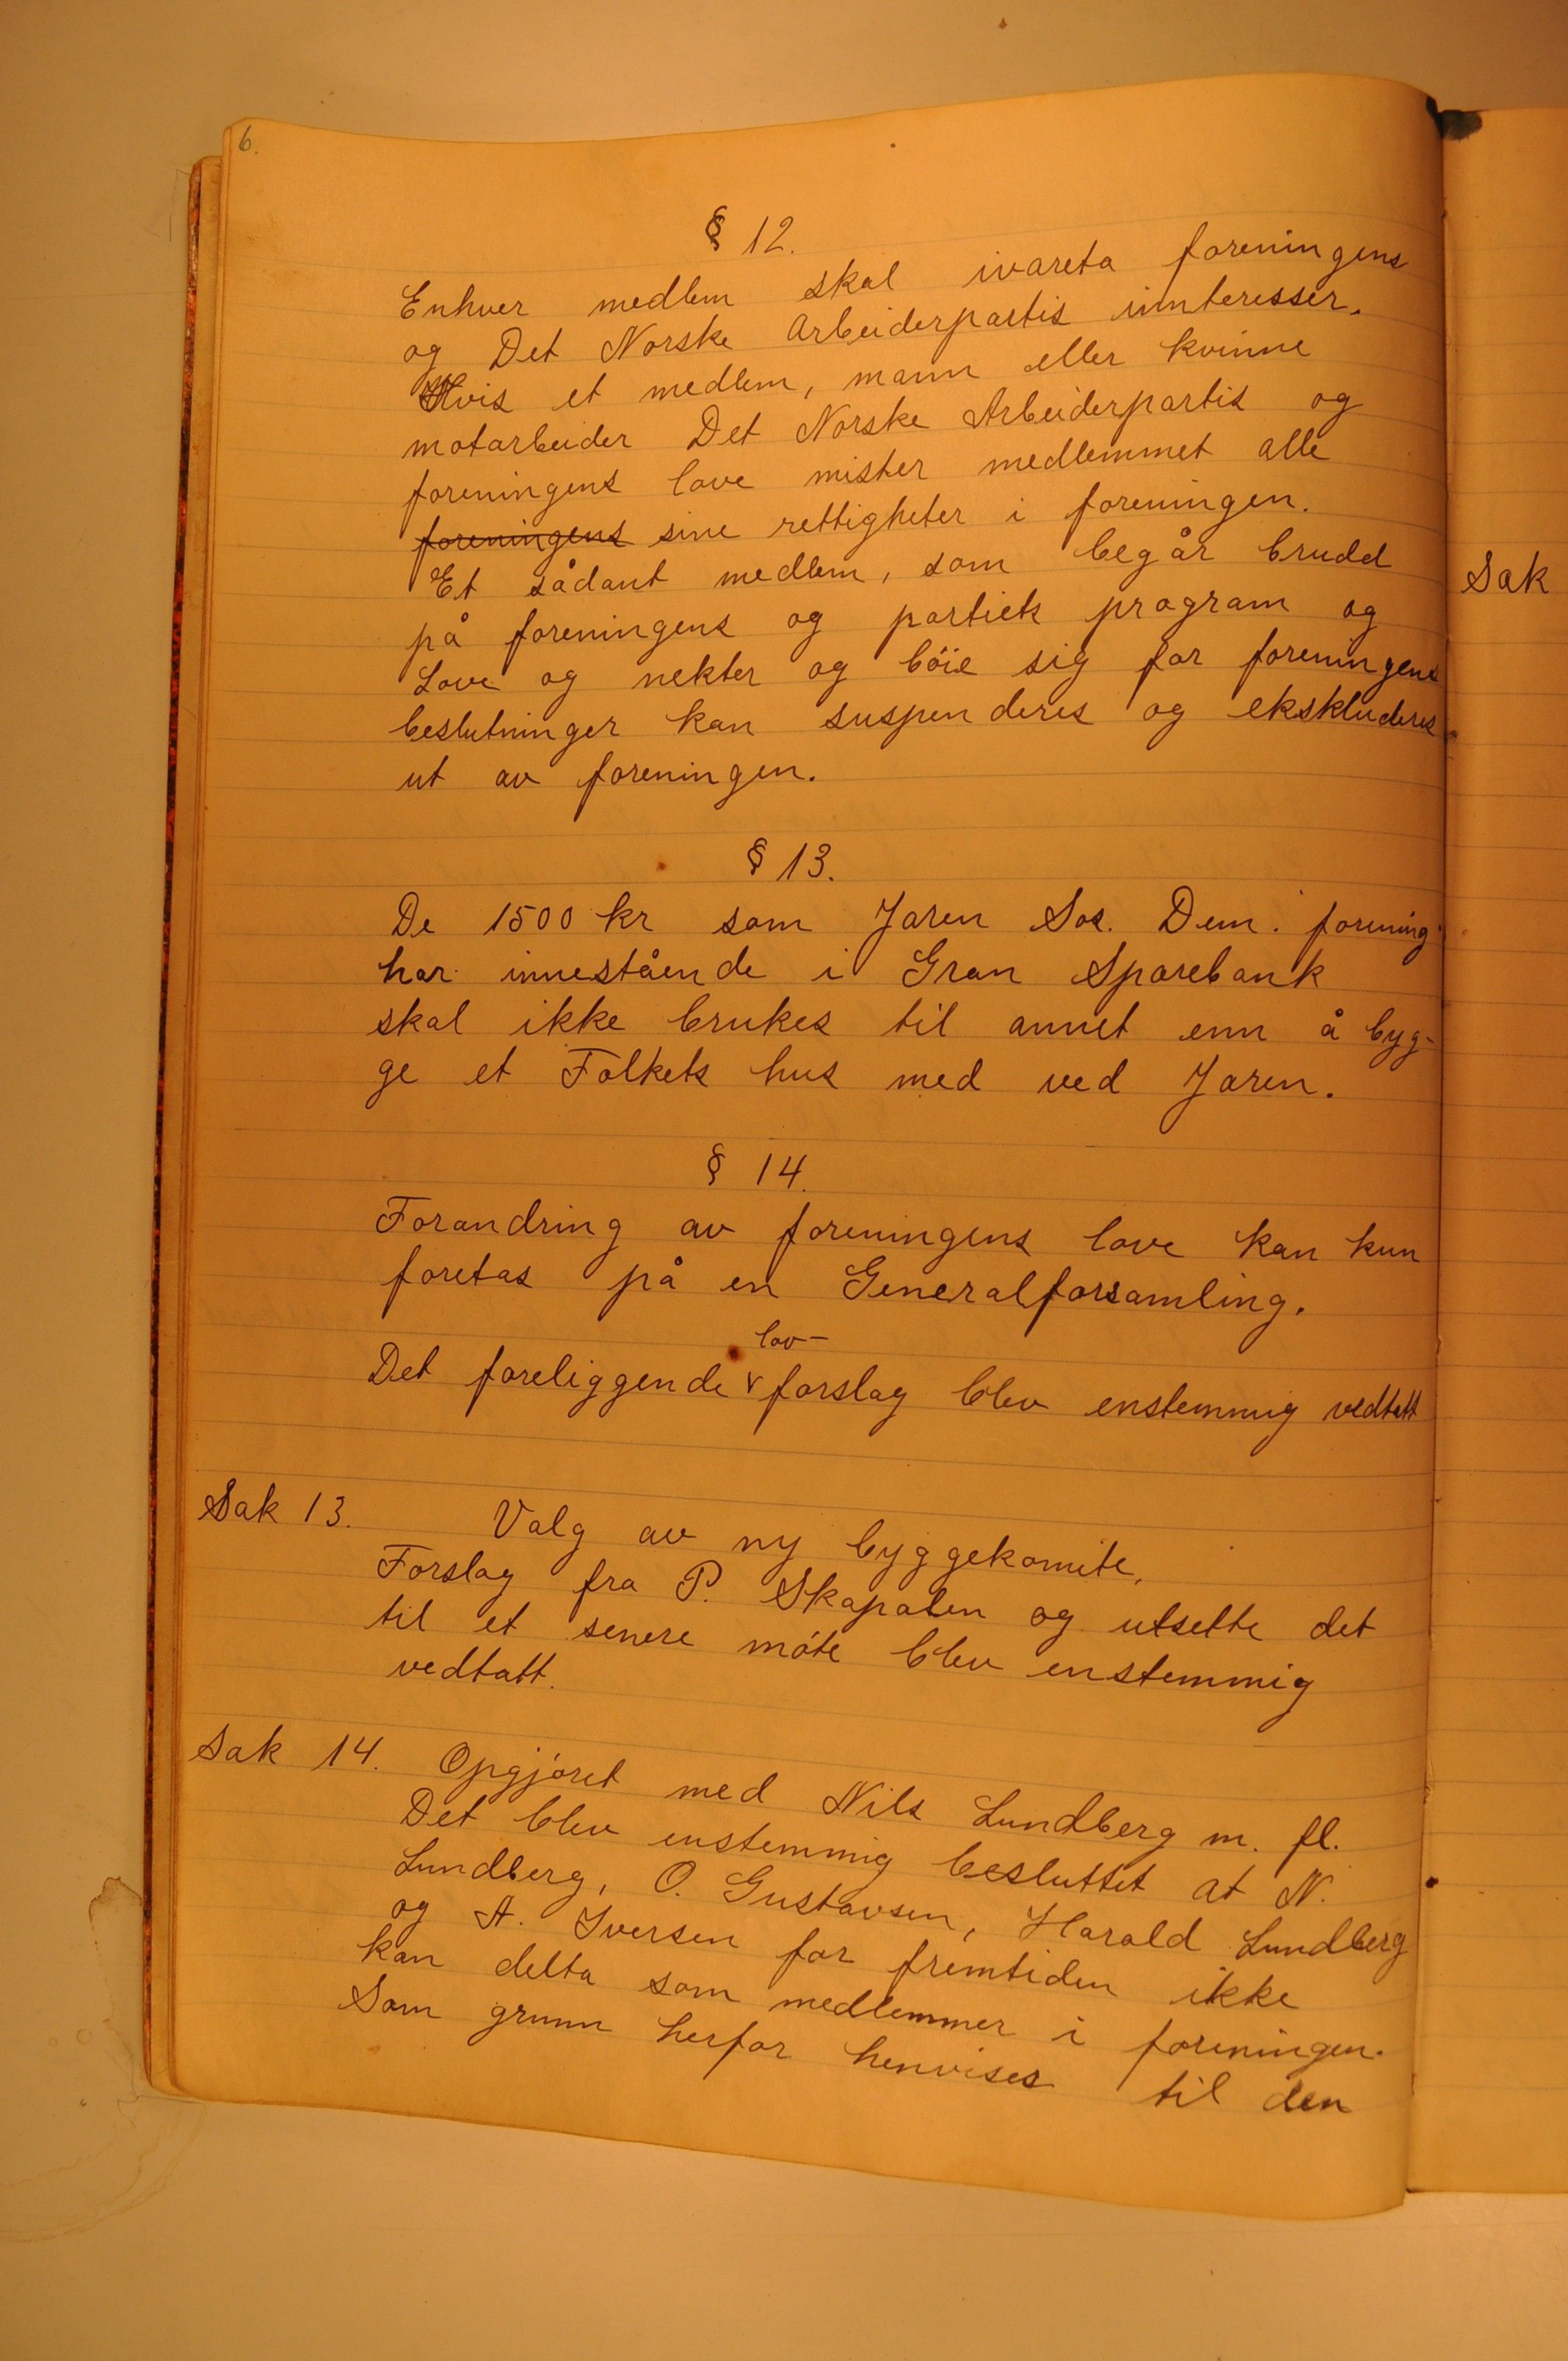 6.
§ 12.
Enhver medlem skal ivareta foreningens
og Det Norske Arbeiderpartis innteresser.
Hvis et medlem, mann eller kvinne
motarbeider Det Norske Arbeiderpartis og
foreningens love mister medlemmet alle
foreningens sine rettigheter i foreningen.
Et sådant medlem, som begår brudd
på foreningens og partiets program og
Love og nekter og böie sig for foreningens
beslutninger kan suspenderes og ekskluderes
ut av foreningen.
§ 13.
De 1500 kr som Jaren Sos. Dem. forening
har innestående i Gran Sparebank
skal ikke brukes til annet enn å byg-
ge et Folkets hus med ved Jaren.
§ 14.
Forandring av foreningens love kan kun
foretas på en Generalforsamling.
lov-
Det foreliggende v forslag blev enstemmig vedtatt
Sak 13. Valg av ny byggekomite,
Forslag fra P. Skapalen og utsette det
til et senere móte blev enstemmig
vedtatt.
Sak 14. Opgjóret med Nils Lundberg m. fl.
Det blev enstemmig besluttet at N.
Lundberg, O. Gustavsen, Harald Lundberg
og A. Iversen for fremtiden ikke
kan delta som medlemmer i foreningen.
Som grunn herfor henvises til den
Sak